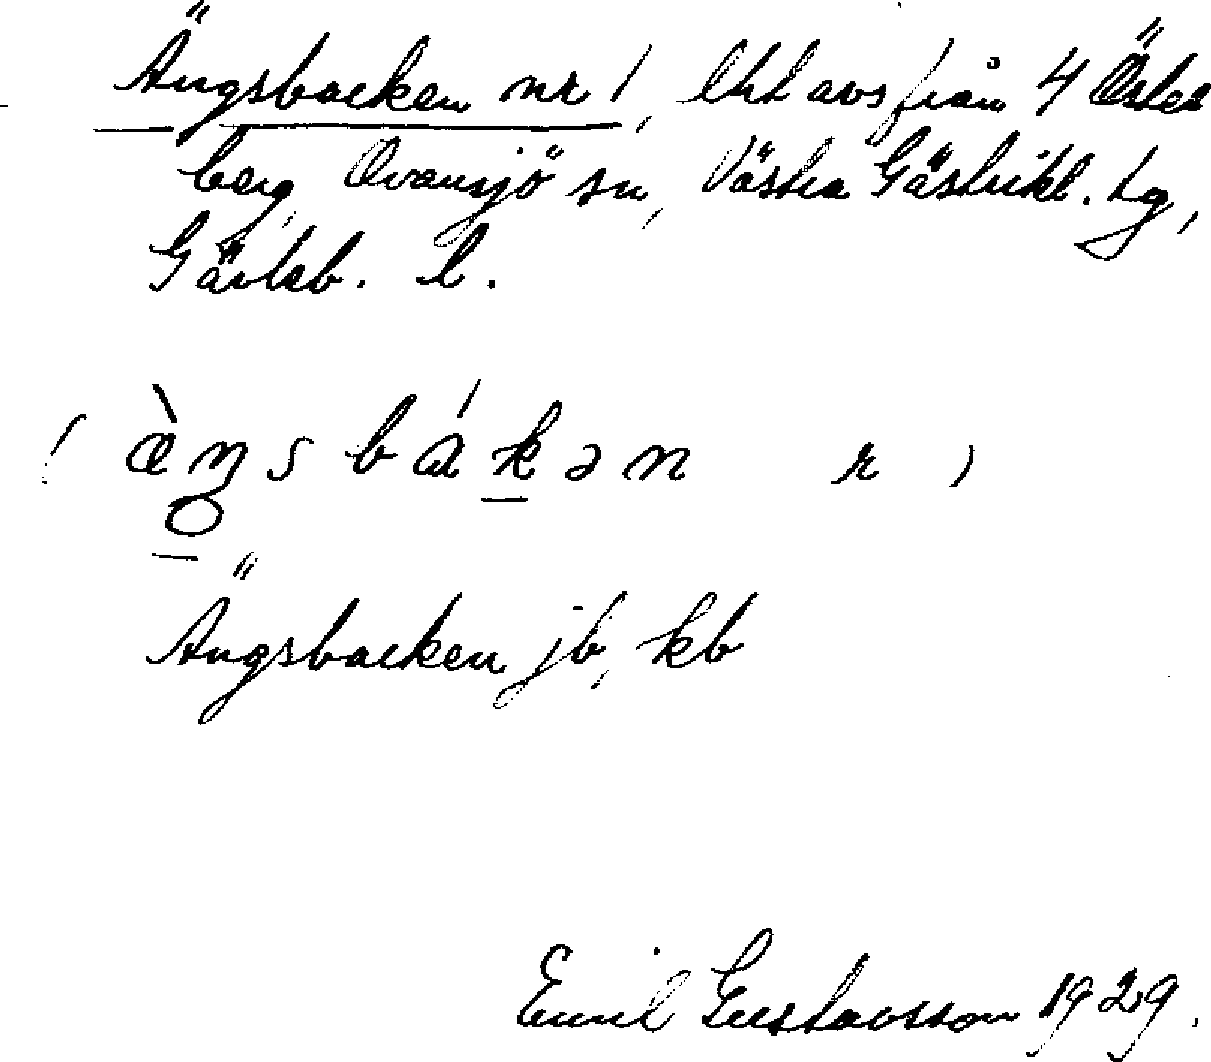 Ängsbacken nr 1, lht avs från 4 Öster
berg, Ovansjö sn, Västra Gästrikl. tg,
Gävleb. l.
( æ̀ŋsbákən r )
Ängsbacken jb, kb
Emil Gustavsson 1929.